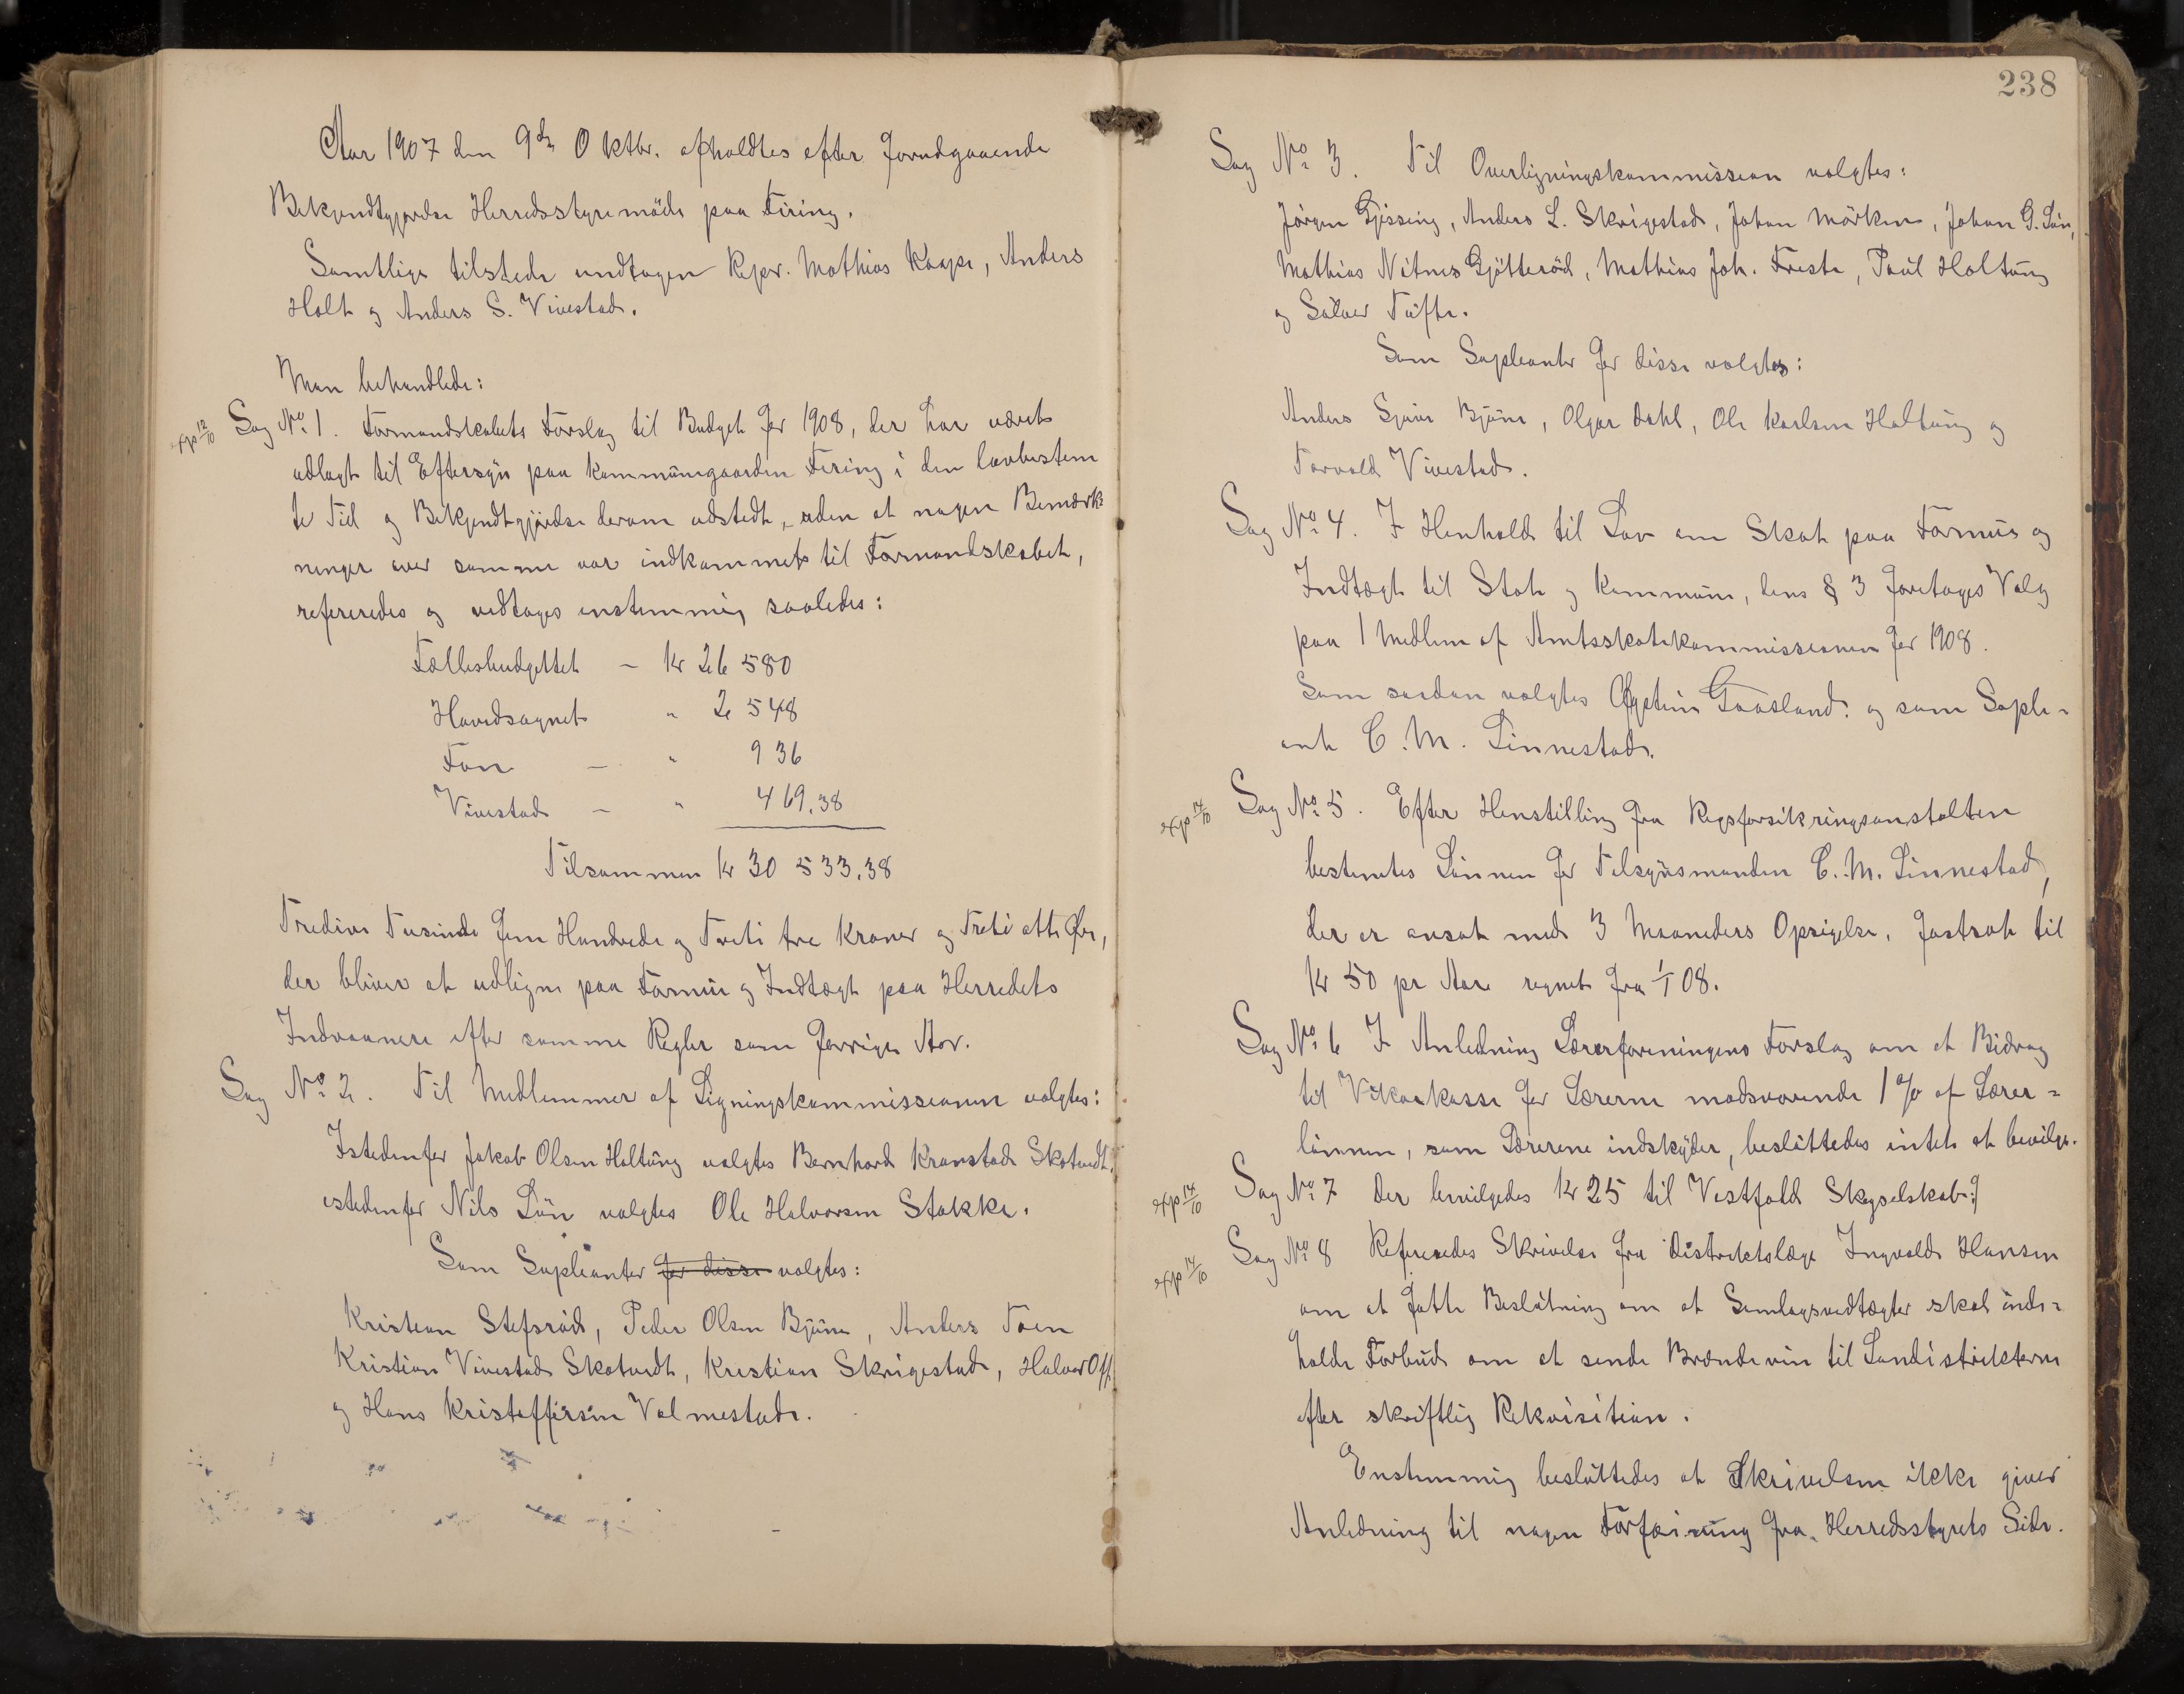 Aar 1907 den 9de Oktbr. afholdtes efter forudgaaende
Bekjendtgjørelse Herredsstyremøde paa Firing.
Samtlige tilstede undtagen Repr. Mathias Kaape, Anders
Holt og Anders S. Vivestad.
Man behandlede:
exp 12/10 Sag No 1. Formandskabets Forslag til Budget for 1908, der har været
udlagt til Eftersyn paa Kommunegaarden Firing i den lovbestem
te Tid og Bekjendtgjørelse derom udstedt, uden at nogen Bemærk-
ninger over samme var indkommet til Formandskabet,
refereredes og vedtoges enstemmig saaledes:
Fællesbudgettet – Kr 26 580
Hovedsognet " 2 548
Fon – " 936
Vivestad – " 469,38
Tilsammen Kr 30 533,38
Tredive Tusinde fem Hundrede og Treti tre Kroner og Treti otte Øre,
der bliver at udligne paa Formue og Indtægt paa Herredets
Indvaanere efter samme Regler som forrige Aar.
Sag No 2. Til Medlemmer af Ligningskommissionen valgtes:
Istedenfor Jakob Olsen Holtung valgtes Bernhard Kranstad Skotvedt.
istedenfor Nils Løn valgtes Ole Halvorsen Stokke.
Som Supleanter for disse valgtes:
Kristian Stefsrød, Peder Olsen Bjune, Anders Foen
Kristian Vivestad Skotvedt, Kristian Skrigestad, Halvor Off.
og Hans Kristoffersen Valmestad.
238
Sag No 3. Til Overligningskommission valgtes:
Jørgen Gjissing, Anders L. Skrigestad, Johan Mörken, Johan G. Løn,
Mathias Nitnes Gjötteröd, Mathias Joh. Freste, Paul Holtung
og Sölver Tufte.
Som Supleanter for disse valgtes:
Anders Bjune, Olgar Dahl, Ole Karlsen Holtung og
Torvald Vivestad.
Sag No 4. I Henhold til Lov om Skat paa Formue og
Indtægt til Stat og Kommune, dens § 3 foretoges Valg
paa 1 Medlem af Amtsskattekommissionen for 1908.
Som saadan valgtes Øystein Gaasland og som Suple-
ant C. M. Linnestad.
exp 14/10 Sag No 5. Efter Henstilling fra Rigsforsikringsanstalten
bestemtes Lønnen for Tilsynsmanden C. M. Linnestad,
der er ansat med 3 Maaneders Opsigelse, fastsat til
Kr 50 pr Aar regnet fra 1/1 08.
Sag No 6 I Anledning Lærerforeningens Forslag om et Bidrag
til Vikarkasse for Lærerne modsvarende 1 % af Lærer-
lønnen, som Lærerene indskyder, besluttedes intet at bevilge.
exp 14/10 Sag No 7 Der bevilgedes Kr 25 til Vestfold Skogselskab.
exp 14/10 Sag No 8 Refereredes Skrivelse fra Distriktslæge Ingvald Hansen
om at fatte Beslutning om at Samlagsvedtægter skal inde-
holde Forbud om at sende Brændevin til Landistrikterne
efter skriftlig Rekvisition.
Enstemmig besluttedes at Skrivelsen ikke giver
Anledning til nogen Forføining fra Herredsstyrets Side.